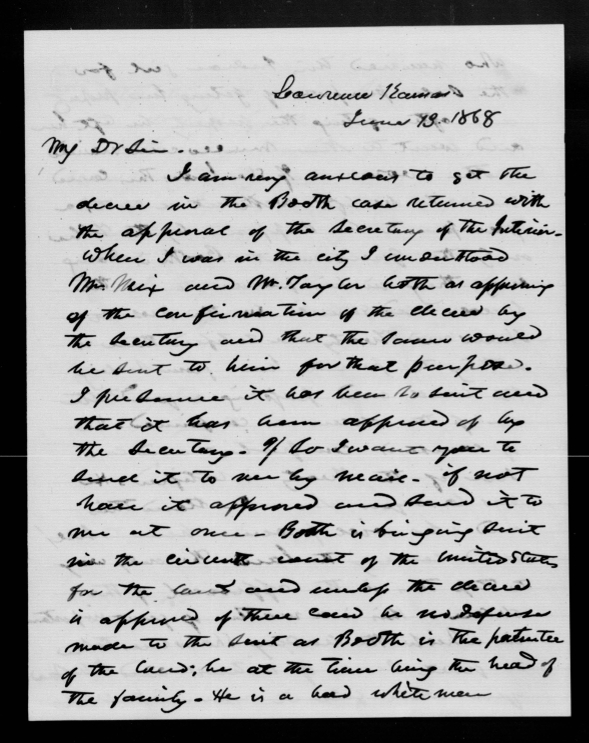 Lawrence Kansas
June 13. 1868
My Dr Sir.
I am very anxious to get the
decree in the Booth case returned with
the approval of the Secretary of the Interior.
When I was in the city I understood
Mr Mix and Mr. Taylor both as approving
of the confirmation of the decree by
the Secretary and that the same would
be sent to him for that purpose.
I presume it has been so sent and
that it has been approved of by
the Secretary. If so I want you to
send it to me by mail. if not
have it approved and send it to
me at once. Booth is bringing suit
in the circuit court of the United States
for the land and unless the decree
is approved of there can be no defense
made to the suit as Booth is the patentee
of the land; he at the time being the head of
the family. He is a bad white man